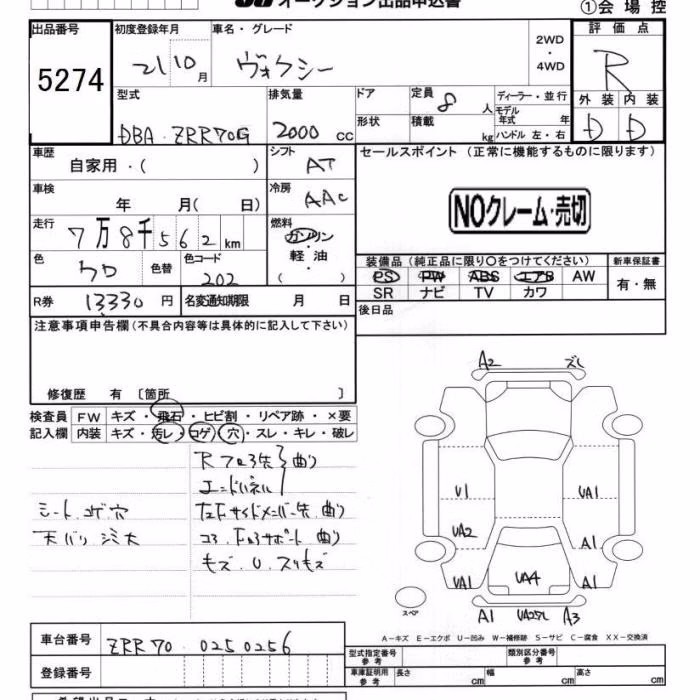 オークション出品申込書
①会場控
出品番号 5274
初度登録年月 21 10 月
車名・グレード ヴォクシー
2WD・4WD
評価点 R
外装 D 内装 D
型式 DBA-ZRR70G
排気量 2000 CC
ドア
形状
定員 8 人
積載 kg
ディーラー・並行
モデル年式 年
ハンドル 左・右
車歴 自家用・( )
シフト AT
セールスポイント (正常に機能するものに限ります)
車検 年 月( 日)
冷房 AAC
NOクレーム・売切
走行 7万8千562km
燃料 ガソリン・軽油・( )
色 クロ 色替
色コード 202
装備品 (純正品に限り○をつけてください)
PS PW ABS エアB AW
SR ナビ TV カワ
新車保証書 有・無
R券 13330 円
名変通知期限 月 日
後日品
注意事項申告欄 (不具合内容等は具体的に記入して下さい)
修復歴 有 〔箇所 〕
検査員記入欄
FW キズ・飛石・ヒビ割・リペア跡・×要
内装 キズ・汚レ・コゲ・穴・スレ・キレ・破レ
R フロ3先 曲り
エンドパネル
シート コゲ穴
左右サイドメンバー先 曲り
天バリ シミ大
コア 下ロアサポート 曲り
キズ、U、スリキズ
A2 ズレ
U1 UA1
UA2 A1
UA1 UA4 A1
スペア
A1 UA25L A3
A－キズ E－エクボ U－凹み W－補修跡 S－サビ C－腐食 XX－交換済
車台番号 ZRR70-0250256
型式指定番号 参考
類別区分番号 参考
登録番号
車庫証明用 参考 長さ cm 幅 cm 高さ cm
希望出品コーナー